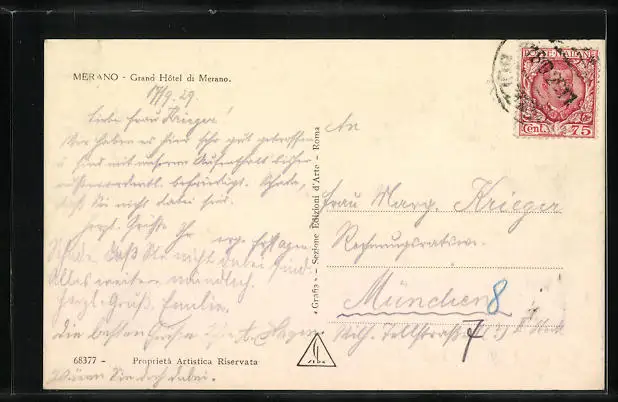 MERANO - Grand Hôtel di Merano.
17/9.29.
Liebe Frau Krieger!
Wir haben es hier sehr gut getroffen
u. sind mit unserem Aufenthalt bisher
außerordentl. befriedigt. Schade,
daß Sie nicht dabei sind.
Herzl. Grüße Ihr
Schade, daß Sie nicht dabei sind.
Alles weitere mündlich.
Herzl. Grüße, Emilie.
die besten Grüße
Wären Sie doch dabei.
68377 - Proprietà Artistica Riservata
«Grafia» - Sezione Edizioni d'Arte - Roma
POSTE ITALIANE
Cent. 75
An
Frau Marg. Krieger
Rechnungsratsw.
München 8